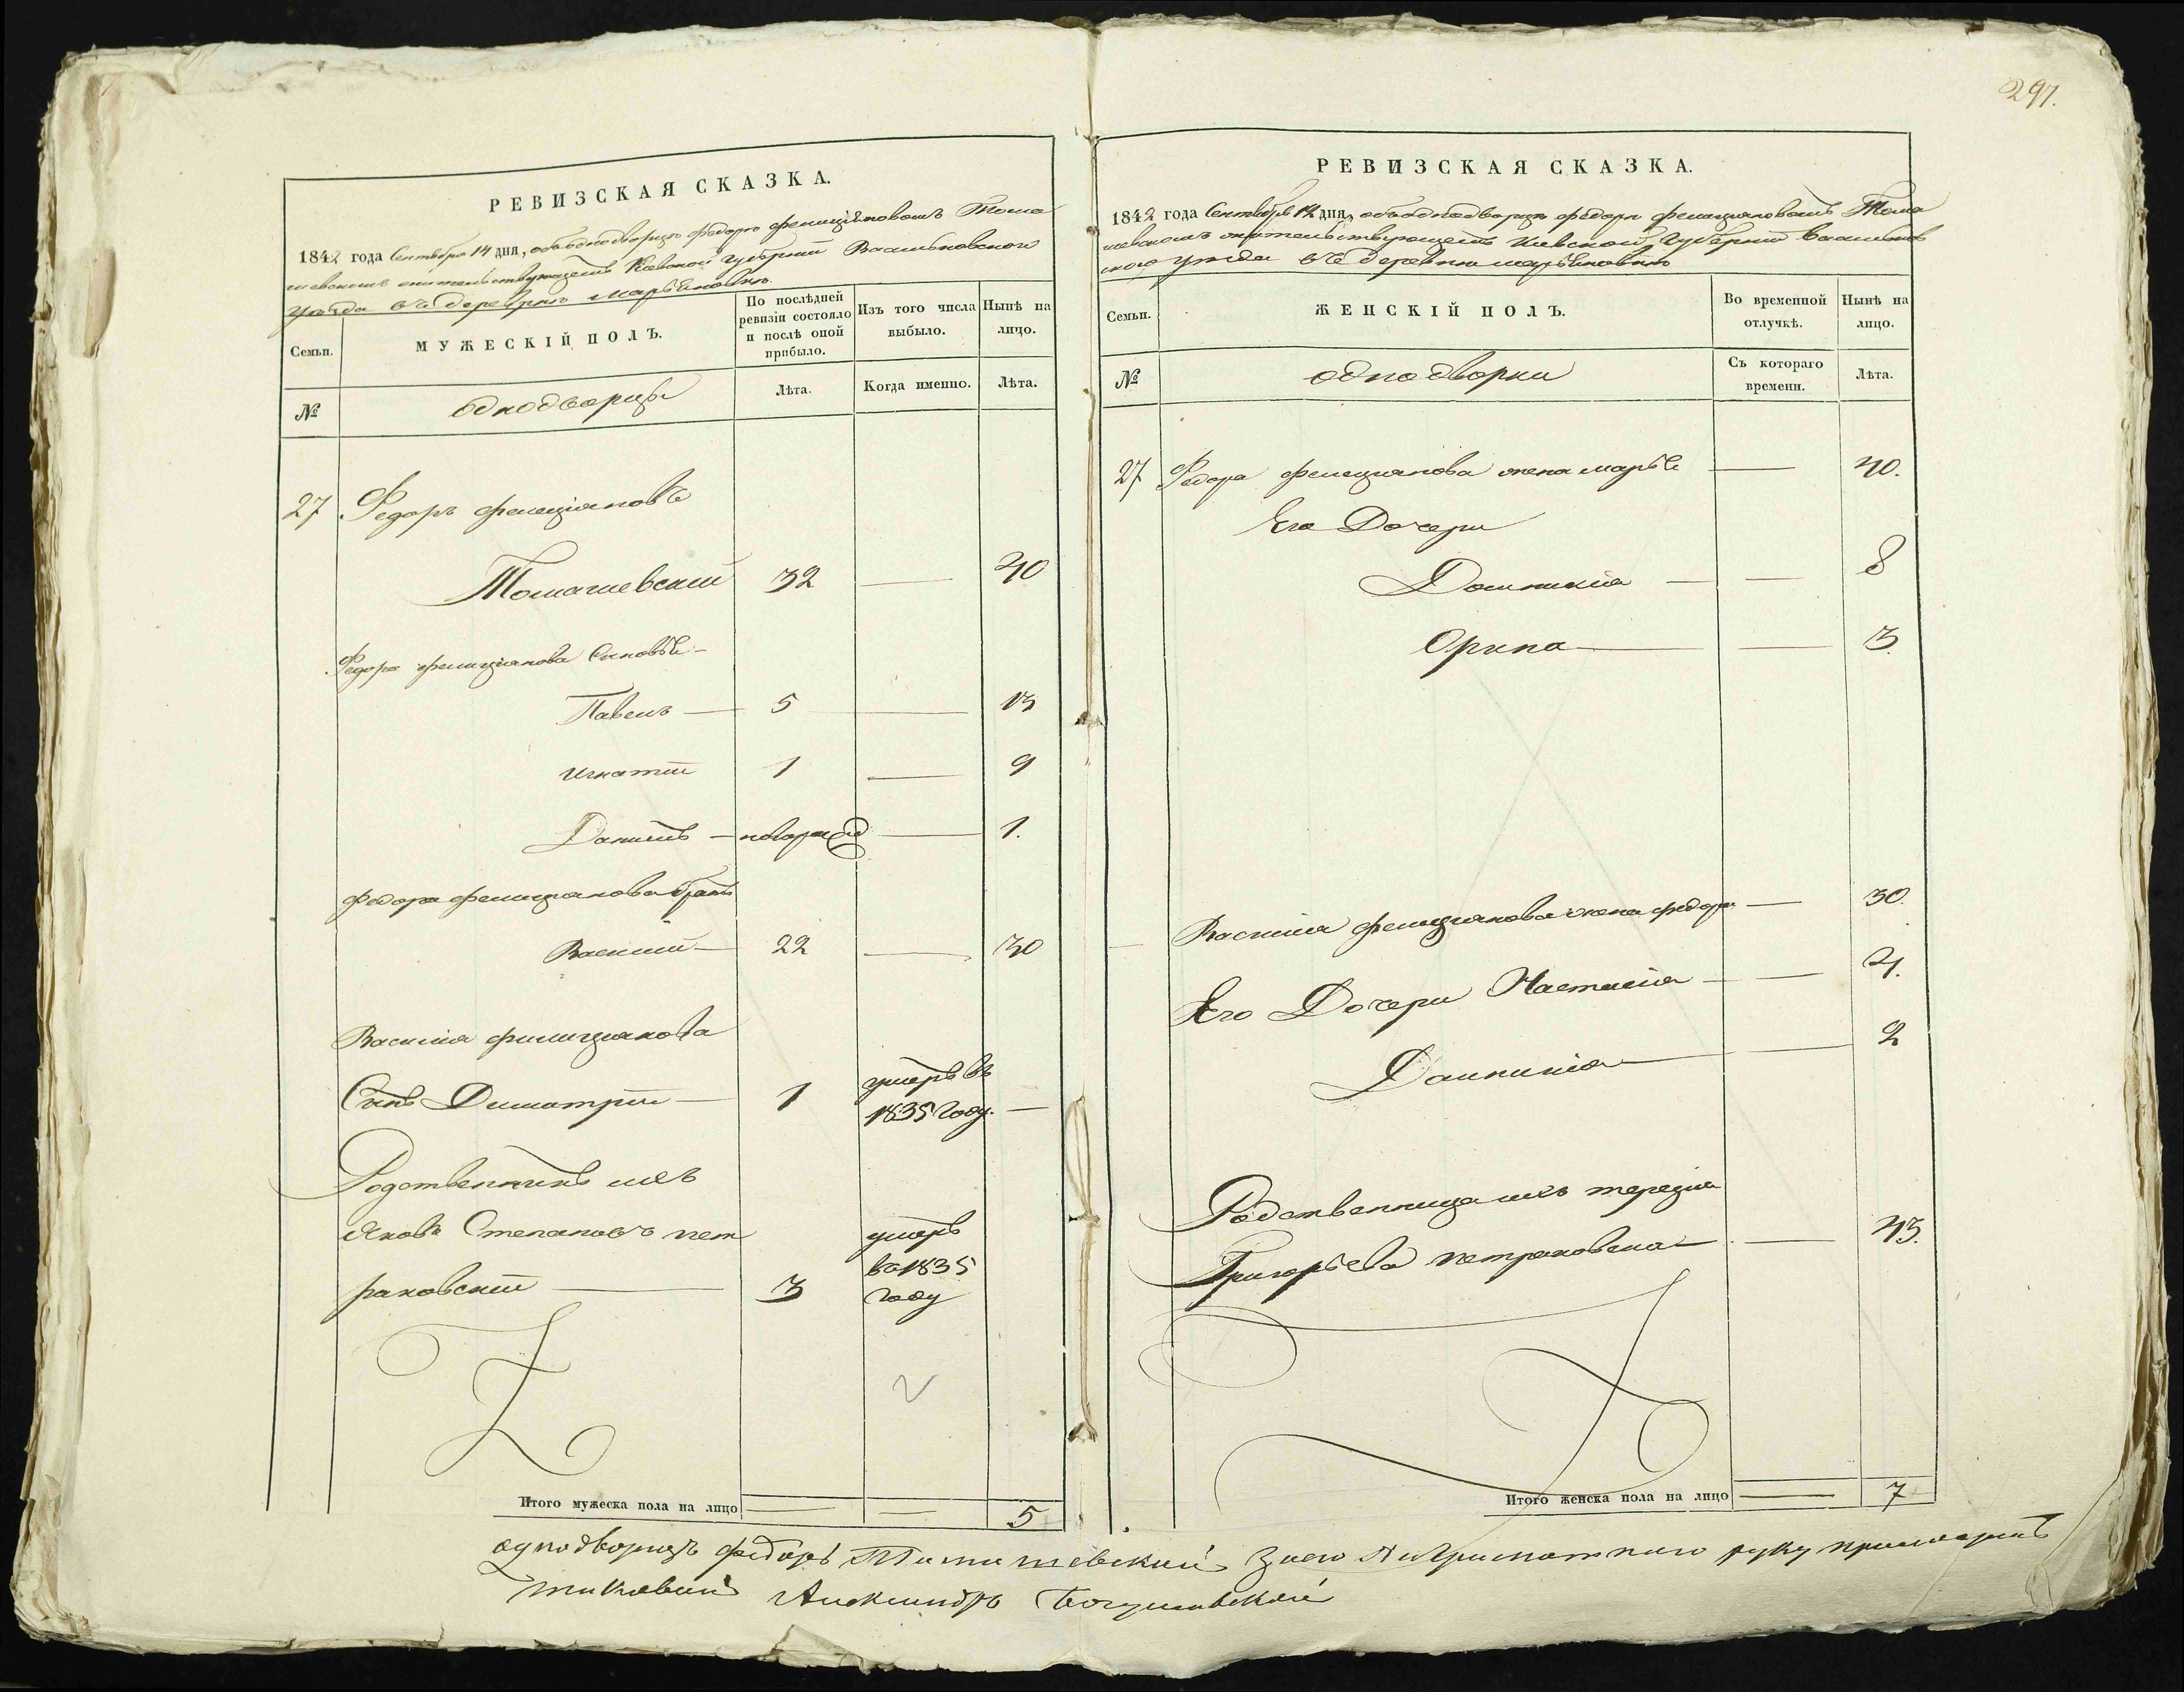 297.
РЕВИЗСКАЯ СКАЗКА.
1842 года Сентября 14 дня, объ однодворцѣ Федорѣ Фелиціановомъ Тома
шевскомъ жительствующемъ Кіевской губерніи Васильковского
уѣзда въ деревнѣ Марьяновкѣ.
Семьи.
МУЖЕСКІЙ ПОЛЪ.
По послѣдней
ревизіи состояло
и послѣ оной
прибыло.
Изъ того числа
выбыло.
Нынѣ на
лицо.
№
однодворцы
Лѣта.
Когда именно.
Лѣта.
27 Федоръ Фелиціановъ
Томашевскій 32 — 40
Федора Фелиціанова Сыновья —
Павелъ — 5 — 13
Игнатій 1 — 9
Данилъ — новорож — 1.
Федора Фелиціанова братъ
Василій — 22 — 30
Василія Филиціанова
Сынъ Димитрій — 1 умеръ въ
1835 году. —
Родственникъ ихъ
Яковъ Степановъ пет
раковскій — 3 умеръ
въ 1835
году
Итого мужеска пола на лицо — — 5
РЕВИЗСКАЯ СКАЗКА.
1842 года Сентября 14 дня, объ однодворцѣ Федорѣ Фелиціановомъ Тома
шевскомъ жительствующемъ Кіевской Губерніи Васильков
ского уѣзда въ деревнѣ марьяновкѣ
Семьи.
ЖЕНСКІЙ ПОЛЪ.
Во временной
отлучкѣ.
Нынѣ на
лицо.
№
однодворки
Съ котораго
времени.
Лѣта.
27 Федора Фелиціанова жена марья — 40.
Его Дочери
Домникія — — 8
Орина — — 3.
Василія Фелиціанова жена федора — 30.
Его Дочери Настасія — — 4.
Домникія — — 2
Родственница ихъ терезія
Григорьева петраковская — — 43.
Итого женска пола на лицо — 7
однодворецъ федоръ Томашевский за его Неграмотнаго руку приложилъ
таковый Александръ Богушевский